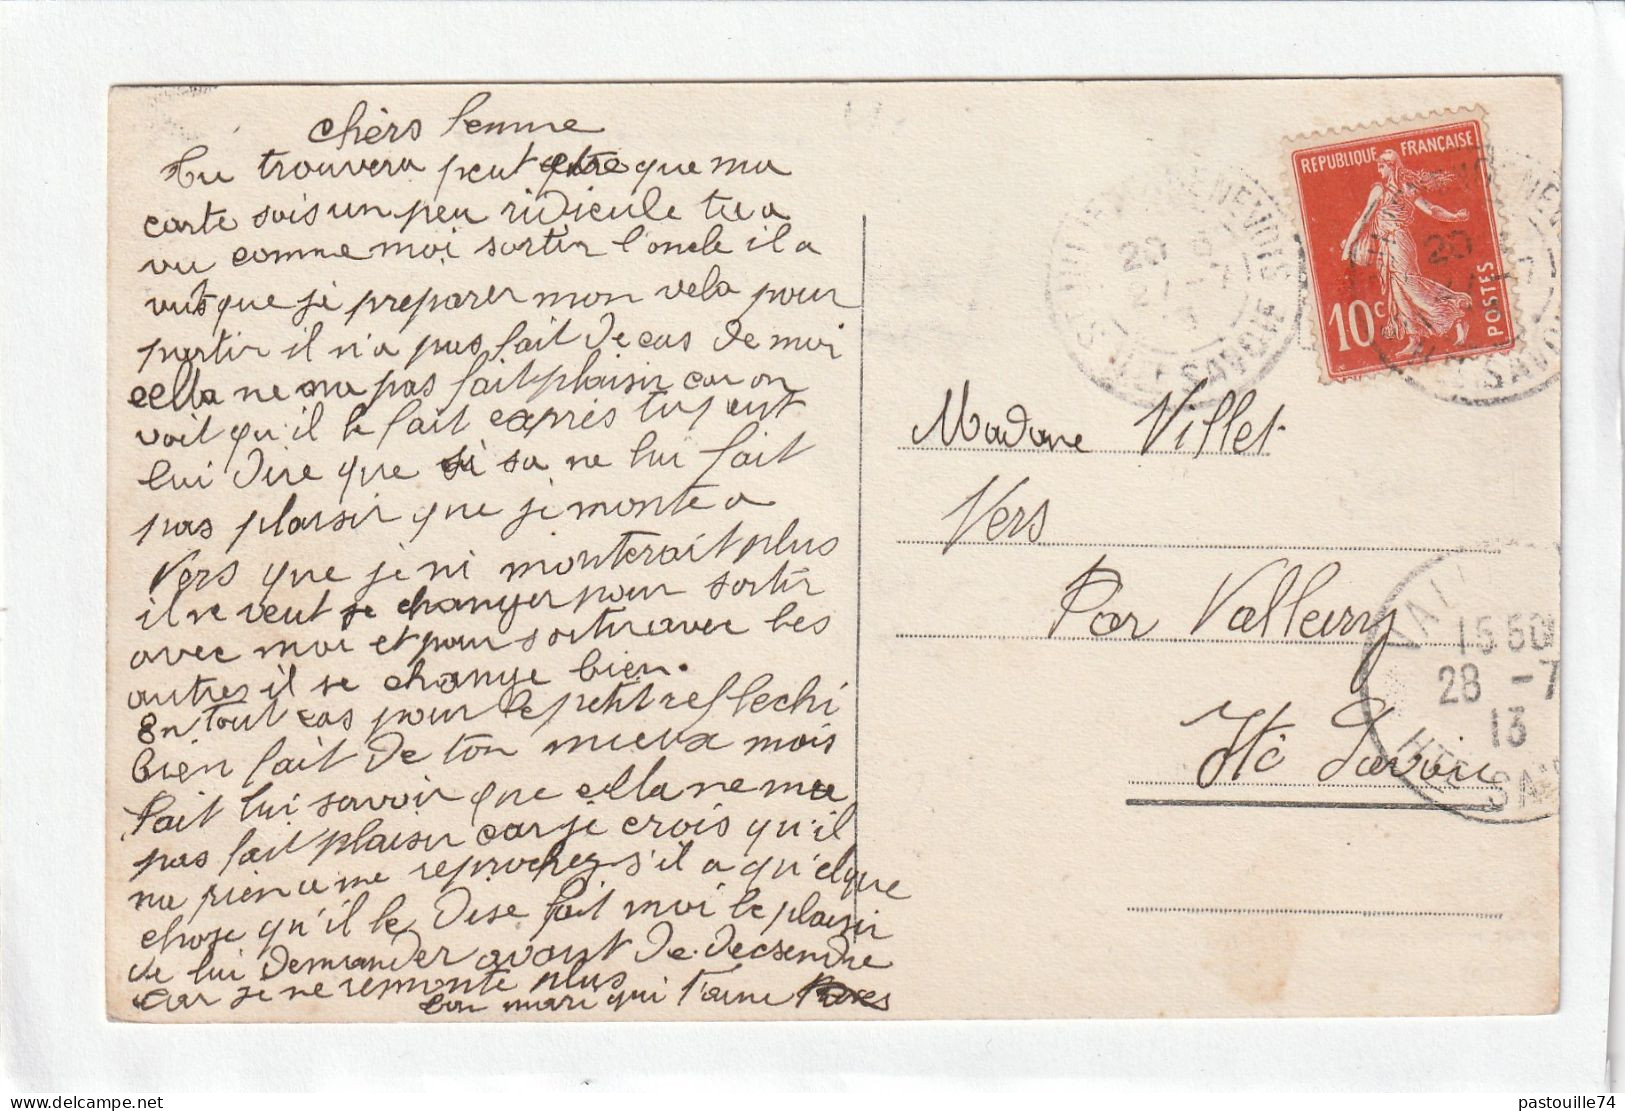 chèrs femme
tu trouvera peut etre que ma
carte sois un peu ridicule tu a
vu comme moi sortir l'oncle il a
vuts que je preparer mon vela pour
partir il n'a pas fait de cas de moi
cella ne ma pas fait plaisir car on
voit qu'il le fait exprès tu peut
lui dire que si sa ne lui fait
pas plaisir que je monte a
Vers que je ni monterait plus
il ne veut se changer pour sortir
avec moi et pour sortir avec les
autres il se change bien.
En tout cas pour le petit reflechi
bien fait de ton mieux mois
fait lui savoir que cella ne me
pas fait plaisir car je crois qu'il
na rien a me reprochez s'il a qu'elque
chose qu'il le dise fait moi le plaisir
de lui demander avant de decsendre
car je ne remonte plus
ton mari qui t'aime
REPUBLIQUE FRANÇAISE
10c
POSTES
GENEVOIS
20
27-7
SAVOIE
Madame Villet
Vers
Par Valleiry
Hte Savoie
VAL
15 50
28 -7
13
HTE SAV
pastouille74